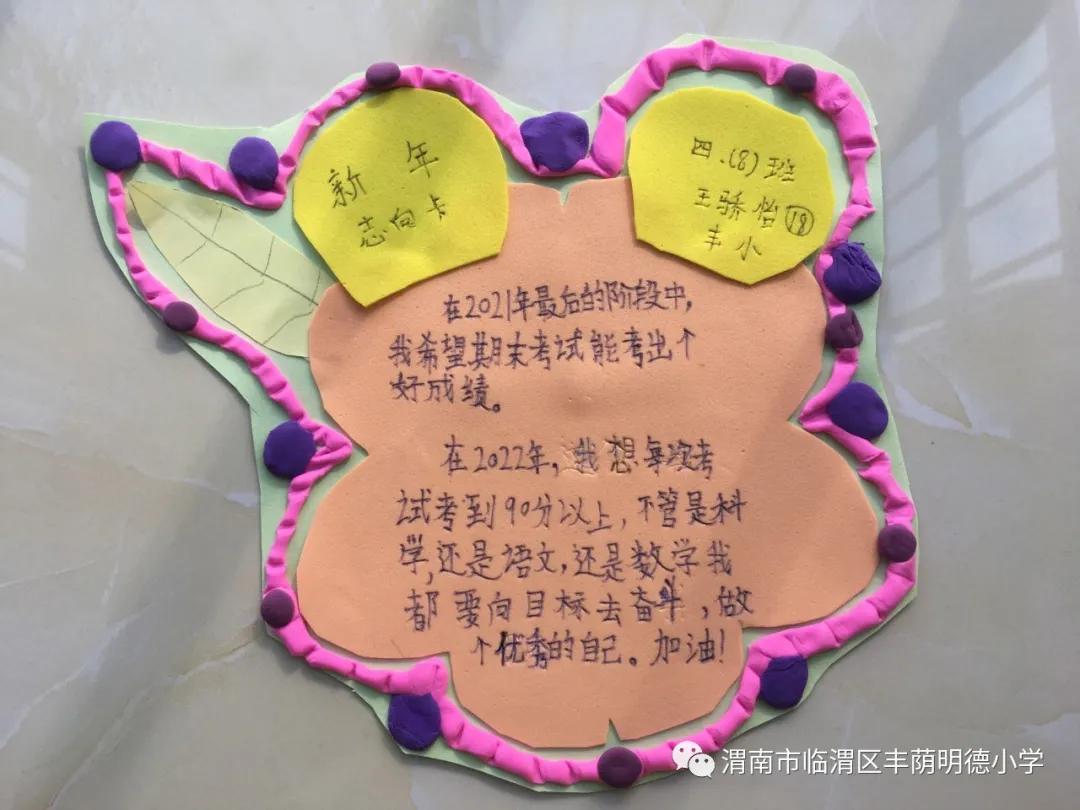 新年
志向卡
四.(8)班
王骄怡⑱
丰小
在2021年最后的阶段中,
我希望期末考试能考出个
好成绩。
在2022年,我想每次考
试考到90分以上,不管是科
学,还是语文,还是数学我
都要向目标去奋斗,做
个优秀的自己。加油!
渭南市临渭区丰荫明德小学